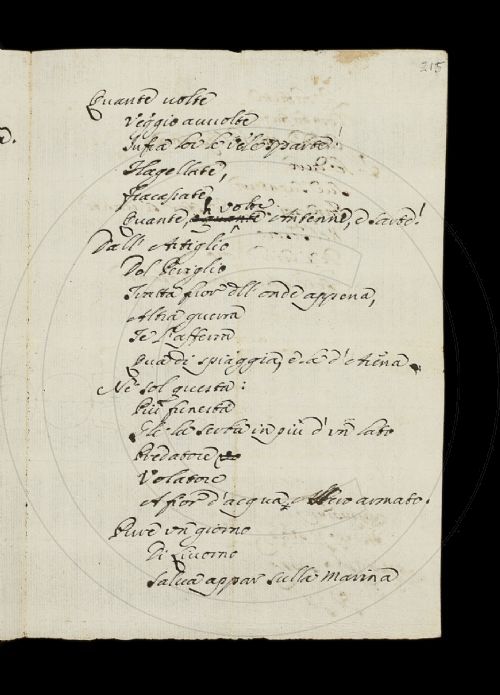 215
a.
Quante uolte
Veggio auuolte
Infra lor le Vele sparte!
Flagellate,
Fracassate
Quante, volte Antenne, e sarte!
Dall' Artiglio
Del Periglio
Tratta fuor dell' onde appena,
Altra guerra
Te l'afferra
Qua di spiaggia, e là d'Arena.
Nè sol questa:
Più funesta
Gli la serba in più d'un lato
Predatore
Volatore
A fior d'acqua armato.
Pure un giorno
Di Liuorno
Salua appar sulla marina